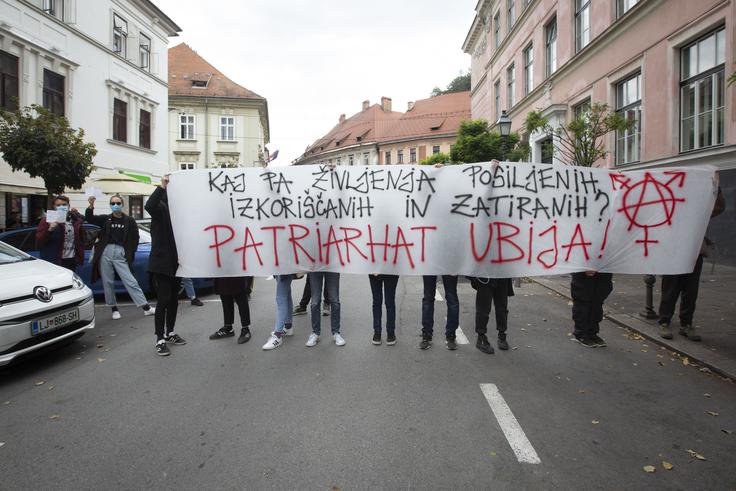 KAJ PA ŽIVLJENJA POSILJENIH,
IZKORIŠČANIH IN ZATIRANIH?
PATRIARHAT UBIJA!
LJ 868-SH